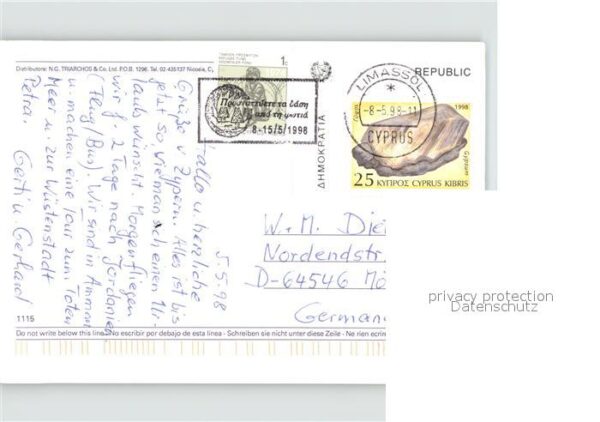 Distributors: N.G. TRIARCHOS & Co. Ltd. P.O.B. 1296. Tel. 02-435137 Nicosia, C
1c
REPUBLIC
ΔΗΜΟΚΡΑΤΙΑ
Προστατέψετε τα δάση
από τη φωτιά
8-15/5/1998
LIMASSOL
-8-5.98-11
CYPRUS
1998
Gypsum
25 ΚΥΠΡΟΣ CYPRUS KIBRIS
5.5.98
Hallo u. herzliche
Grüße v. Zypern. Alles ist bis
jetzt so, wie man sich einen Ur-
laub wünscht. Morgen fliegen
wir f. 2 Tage nach Jordanien
(Flug/Bus). Wir sind in Amman
u. machen eine Tour zum Toten
Meer u. zur Wüstenstadt
Petra.
Gerti u. Gerhard
W. + M. Die
Nordendstr.
D-64546 Mö
Germany
1115
Do not write below this line - No escribir por debajo de esta linea - Schreiben sie nicht unter diese Zeile - Ne rien ecri
privacy protection
Datenschutz